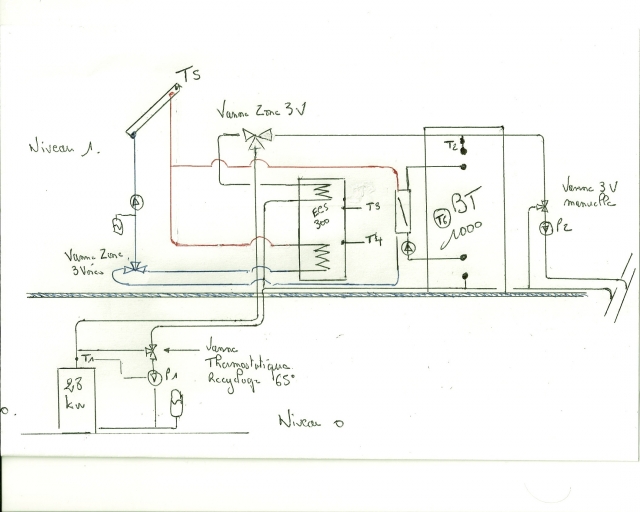 TS
Vanne Zone 3V
Niveau 1.
T2
Vanne 3V
manuelle
ECS
300
T3
T6
BT
1000
P2
T4
Vanne Zone
3 Voies
Vanne
Thermostatique
Recyclage 65°
T1
P1
28
kw
Niveau 0